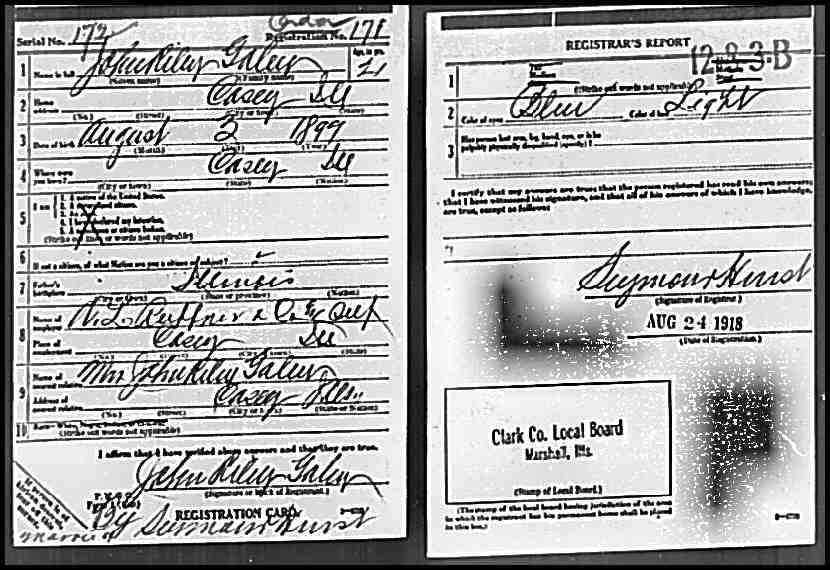 Serial No. 172 Registration No. 171
1 Name in full John Riley Galey Age, in yrs. 21
(Given name) (Family name)
2 Home address Casey Ill
(No.) (Street) (City or town) (State)
3 Date of birth August 2 1897
(Month) (Day) (Year)
4 Where were you born? Casey Ill
(City or town) (State) (Nation)
5 I am 1. A native of the United States.
2. A naturalized citizen.
3. An
4. I have declared my intention.
5. A
(Strike out lines or words not applicable)
6 If not a citizen, of what Nation are you a citizen or subject?
7 Father's birthplace Illinois
(City or town) (State or province) (Nation)
8 Name of employer
Place of employment Casey Ill
(No.) (Street) (City or town) (State)
9 Name of nearest relative Mrs John Riley Galey
Address of nearest relative Casey Ills.
(No.) (Street) (City or town) (State or Nation)
10 Race—White, Negro, Indian, or Oriental
(Strike out words not applicable)
I affirm that I have verified above answers and that they are true.
John Riley Galey
(Signature or mark of Registrant.)
P. M. G. O.
Form
REGISTRATION CARD
By Seymour Hurst
REGISTRAR'S REPORT
12-8-3-B
1
(Strike out words not applicable)
2 Color of eyes Blue Color of hair Light
3 Has person lost arm, leg, hand, eye, or is he
palpably physically disqualified (specify)?
I certify that my answers are true; that the person registered has read his own answers;
that I have witnessed his signature, and that all of his answers of which I have knowledge,
are true, except as follows:
Seymour Hurst
(Signature of Registrar.)
AUG 24 1918
(Date of Registration.)
Clark Co. Local Board
Marshall, Ills.
(Stamp of Local Board.)
(The stamp of the local board having jurisdiction of the area
in which the registrant has his permanent home shall be placed
in this box.)